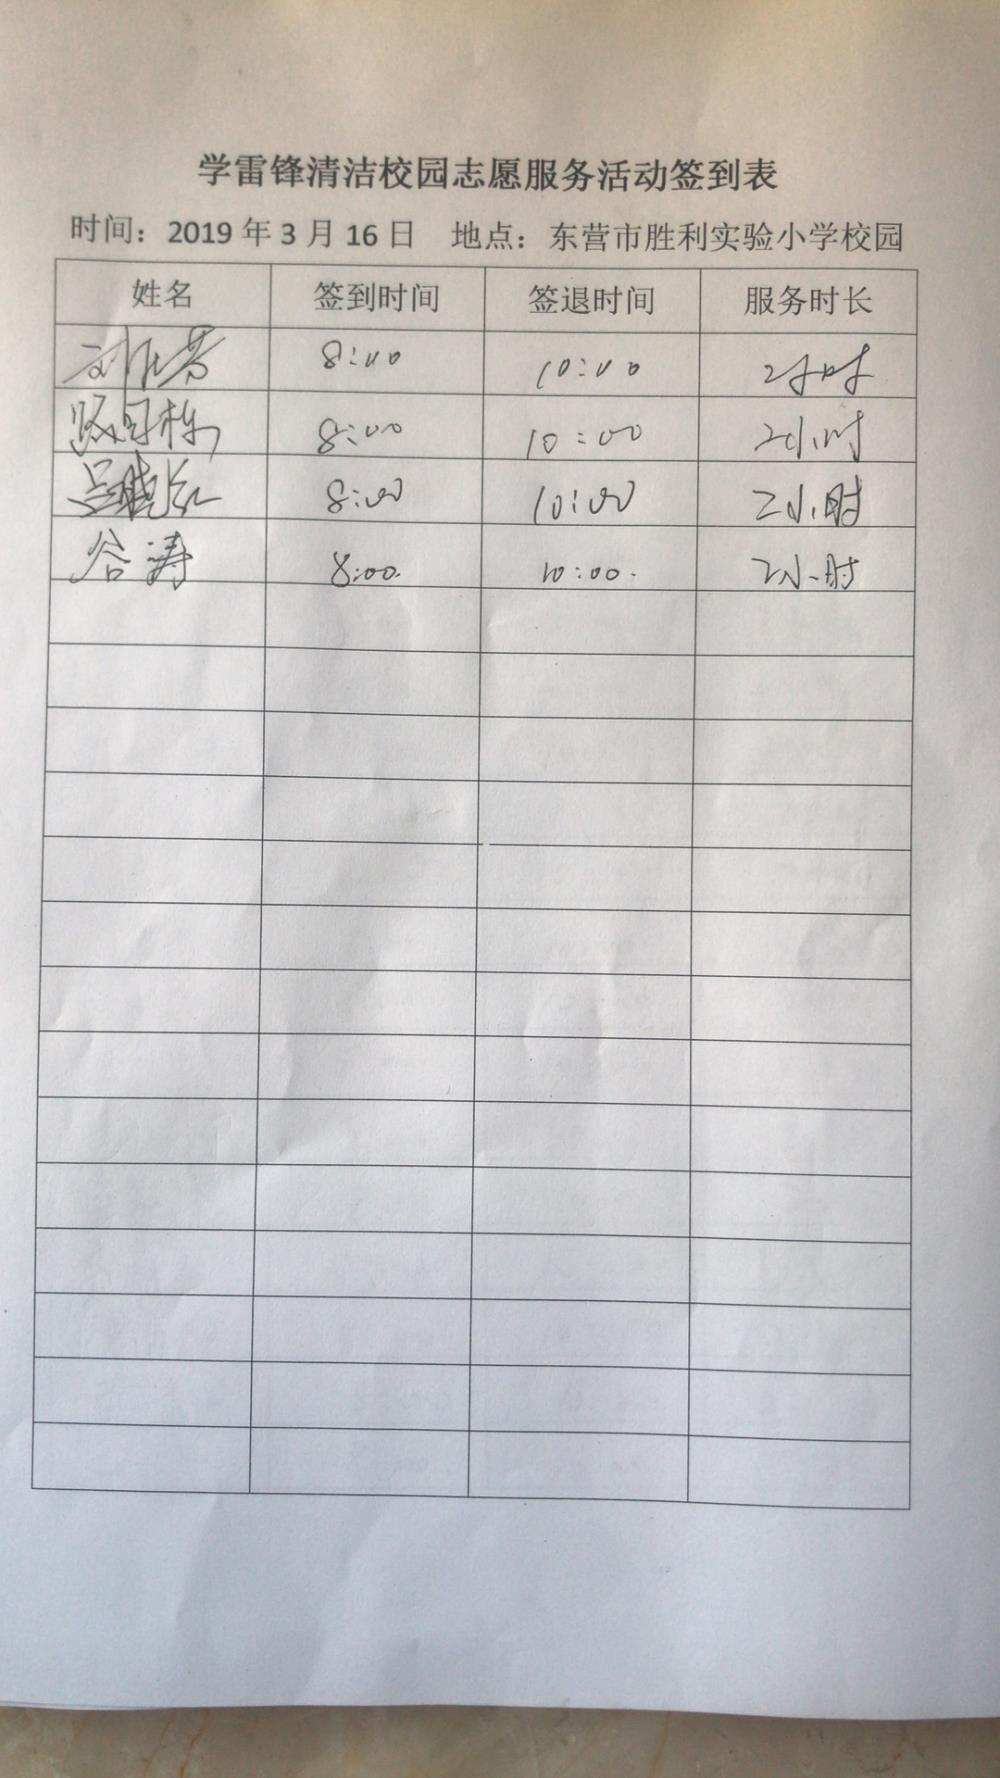 学雷锋清洁校园志愿服务活动签到表
时间：2019年3月16日 地点：东营市胜利实验小学校园
姓名 签到时间 签退时间 服务时长
8:00 10:00 2小时
8:00 10:00 2小时
8:00 10:00 2小时
谷涛 8:00. 10:00. 2小时